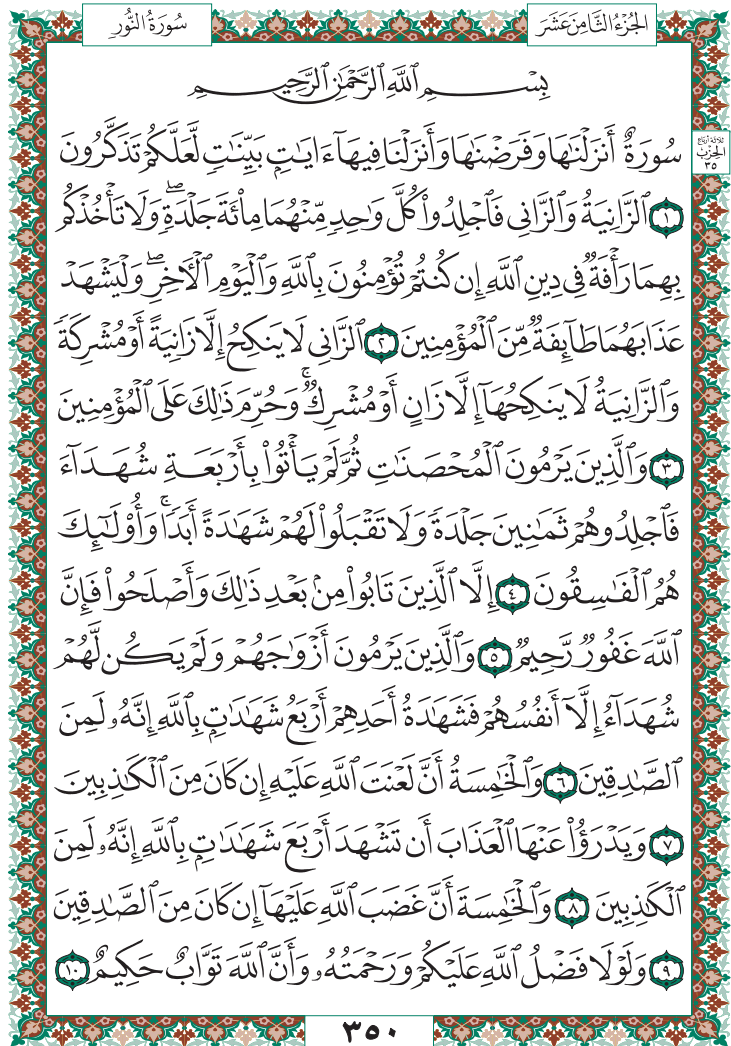 الجُزْءُ الثَّامِنَ عَشَرَ
سُورَةُ النُّورِ
بِسْمِ ٱللَّهِ ٱلرَّحْمَٰنِ ٱلرَّحِيمِ
ثلاثة أرباع
الحزب
٣٥
سُورَةٌ أَنزَلْنَٰهَا وَفَرَضْنَٰهَا وَأَنزَلْنَا فِيهَآ ءَايَٰتٍۭ بَيِّنَٰتٍ لَّعَلَّكُمْ تَذَكَّرُونَ
١ ٱلزَّانِيَةُ وَٱلزَّانِى فَٱجْلِدُوا۟ كُلَّ وَٰحِدٍ مِّنْهُمَا مِا۟ئَةَ جَلْدَةٍۖ وَلَا تَأْخُذْكُم
بِهِمَا رَأْفَةٌ فِى دِينِ ٱللَّهِ إِن كُنتُمْ تُؤْمِنُونَ بِٱللَّهِ وَٱلْيَوْمِ ٱلْأٓخِرِۖ وَلْيَشْهَدْ
عَذَابَهُمَا طَآئِفَةٌ مِّنَ ٱلْمُؤْمِنِينَ ٢ ٱلزَّانِى لَا يَنكِحُ إِلَّا زَانِيَةً أَوْ مُشْرِكَةً
وَٱلزَّانِيَةُ لَا يَنكِحُهَآ إِلَّا زَانٍ أَوْ مُشْرِكٌۚ وَحُرِّمَ ذَٰلِكَ عَلَى ٱلْمُؤْمِنِينَ
٣ وَٱلَّذِينَ يَرْمُونَ ٱلْمُحْصَنَٰتِ ثُمَّ لَمْ يَأْتُوا۟ بِأَرْبَعَةِ شُهَدَآءَ
فَٱجْلِدُوهُمْ ثَمَٰنِينَ جَلْدَةً وَلَا تَقْبَلُوا۟ لَهُمْ شَهَٰدَةً أَبَدًاۚ وَأُو۟لَٰٓئِكَ
هُمُ ٱلْفَٰسِقُونَ ٤ إِلَّا ٱلَّذِينَ تَابُوا۟ مِنۢ بَعْدِ ذَٰلِكَ وَأَصْلَحُوا۟ فَإِنَّ
ٱللَّهَ غَفُورٌ رَّحِيمٌ ٥ وَٱلَّذِينَ يَرْمُونَ أَزْوَٰجَهُمْ وَلَمْ يَكُن لَّهُمْ
شُهَدَآءُ إِلَّآ أَنفُسُهُمْ فَشَهَٰدَةُ أَحَدِهِمْ أَرْبَعُ شَهَٰدَٰتٍۭ بِٱللَّهِ إِنَّهُۥ لَمِنَ
ٱلصَّٰدِقِينَ ٦ وَٱلْخَٰمِسَةُ أَنَّ لَعْنَتَ ٱللَّهِ عَلَيْهِ إِن كَانَ مِنَ ٱلْكَٰذِبِينَ
٧ وَيَدْرَؤُا۟ عَنْهَا ٱلْعَذَابَ أَن تَشْهَدَ أَرْبَعَ شَهَٰدَٰتٍۭ بِٱللَّهِ إِنَّهُۥ لَمِنَ
ٱلْكَٰذِبِينَ ٨ وَٱلْخَٰمِسَةَ أَنَّ غَضَبَ ٱللَّهِ عَلَيْهَآ إِن كَانَ مِنَ ٱلصَّٰدِقِينَ
٩ وَلَوْلَا فَضْلُ ٱللَّهِ عَلَيْكُمْ وَرَحْمَتُهُۥ وَأَنَّ ٱللَّهَ تَوَّابٌ حَكِيمٌ ١٠
٣٥٠